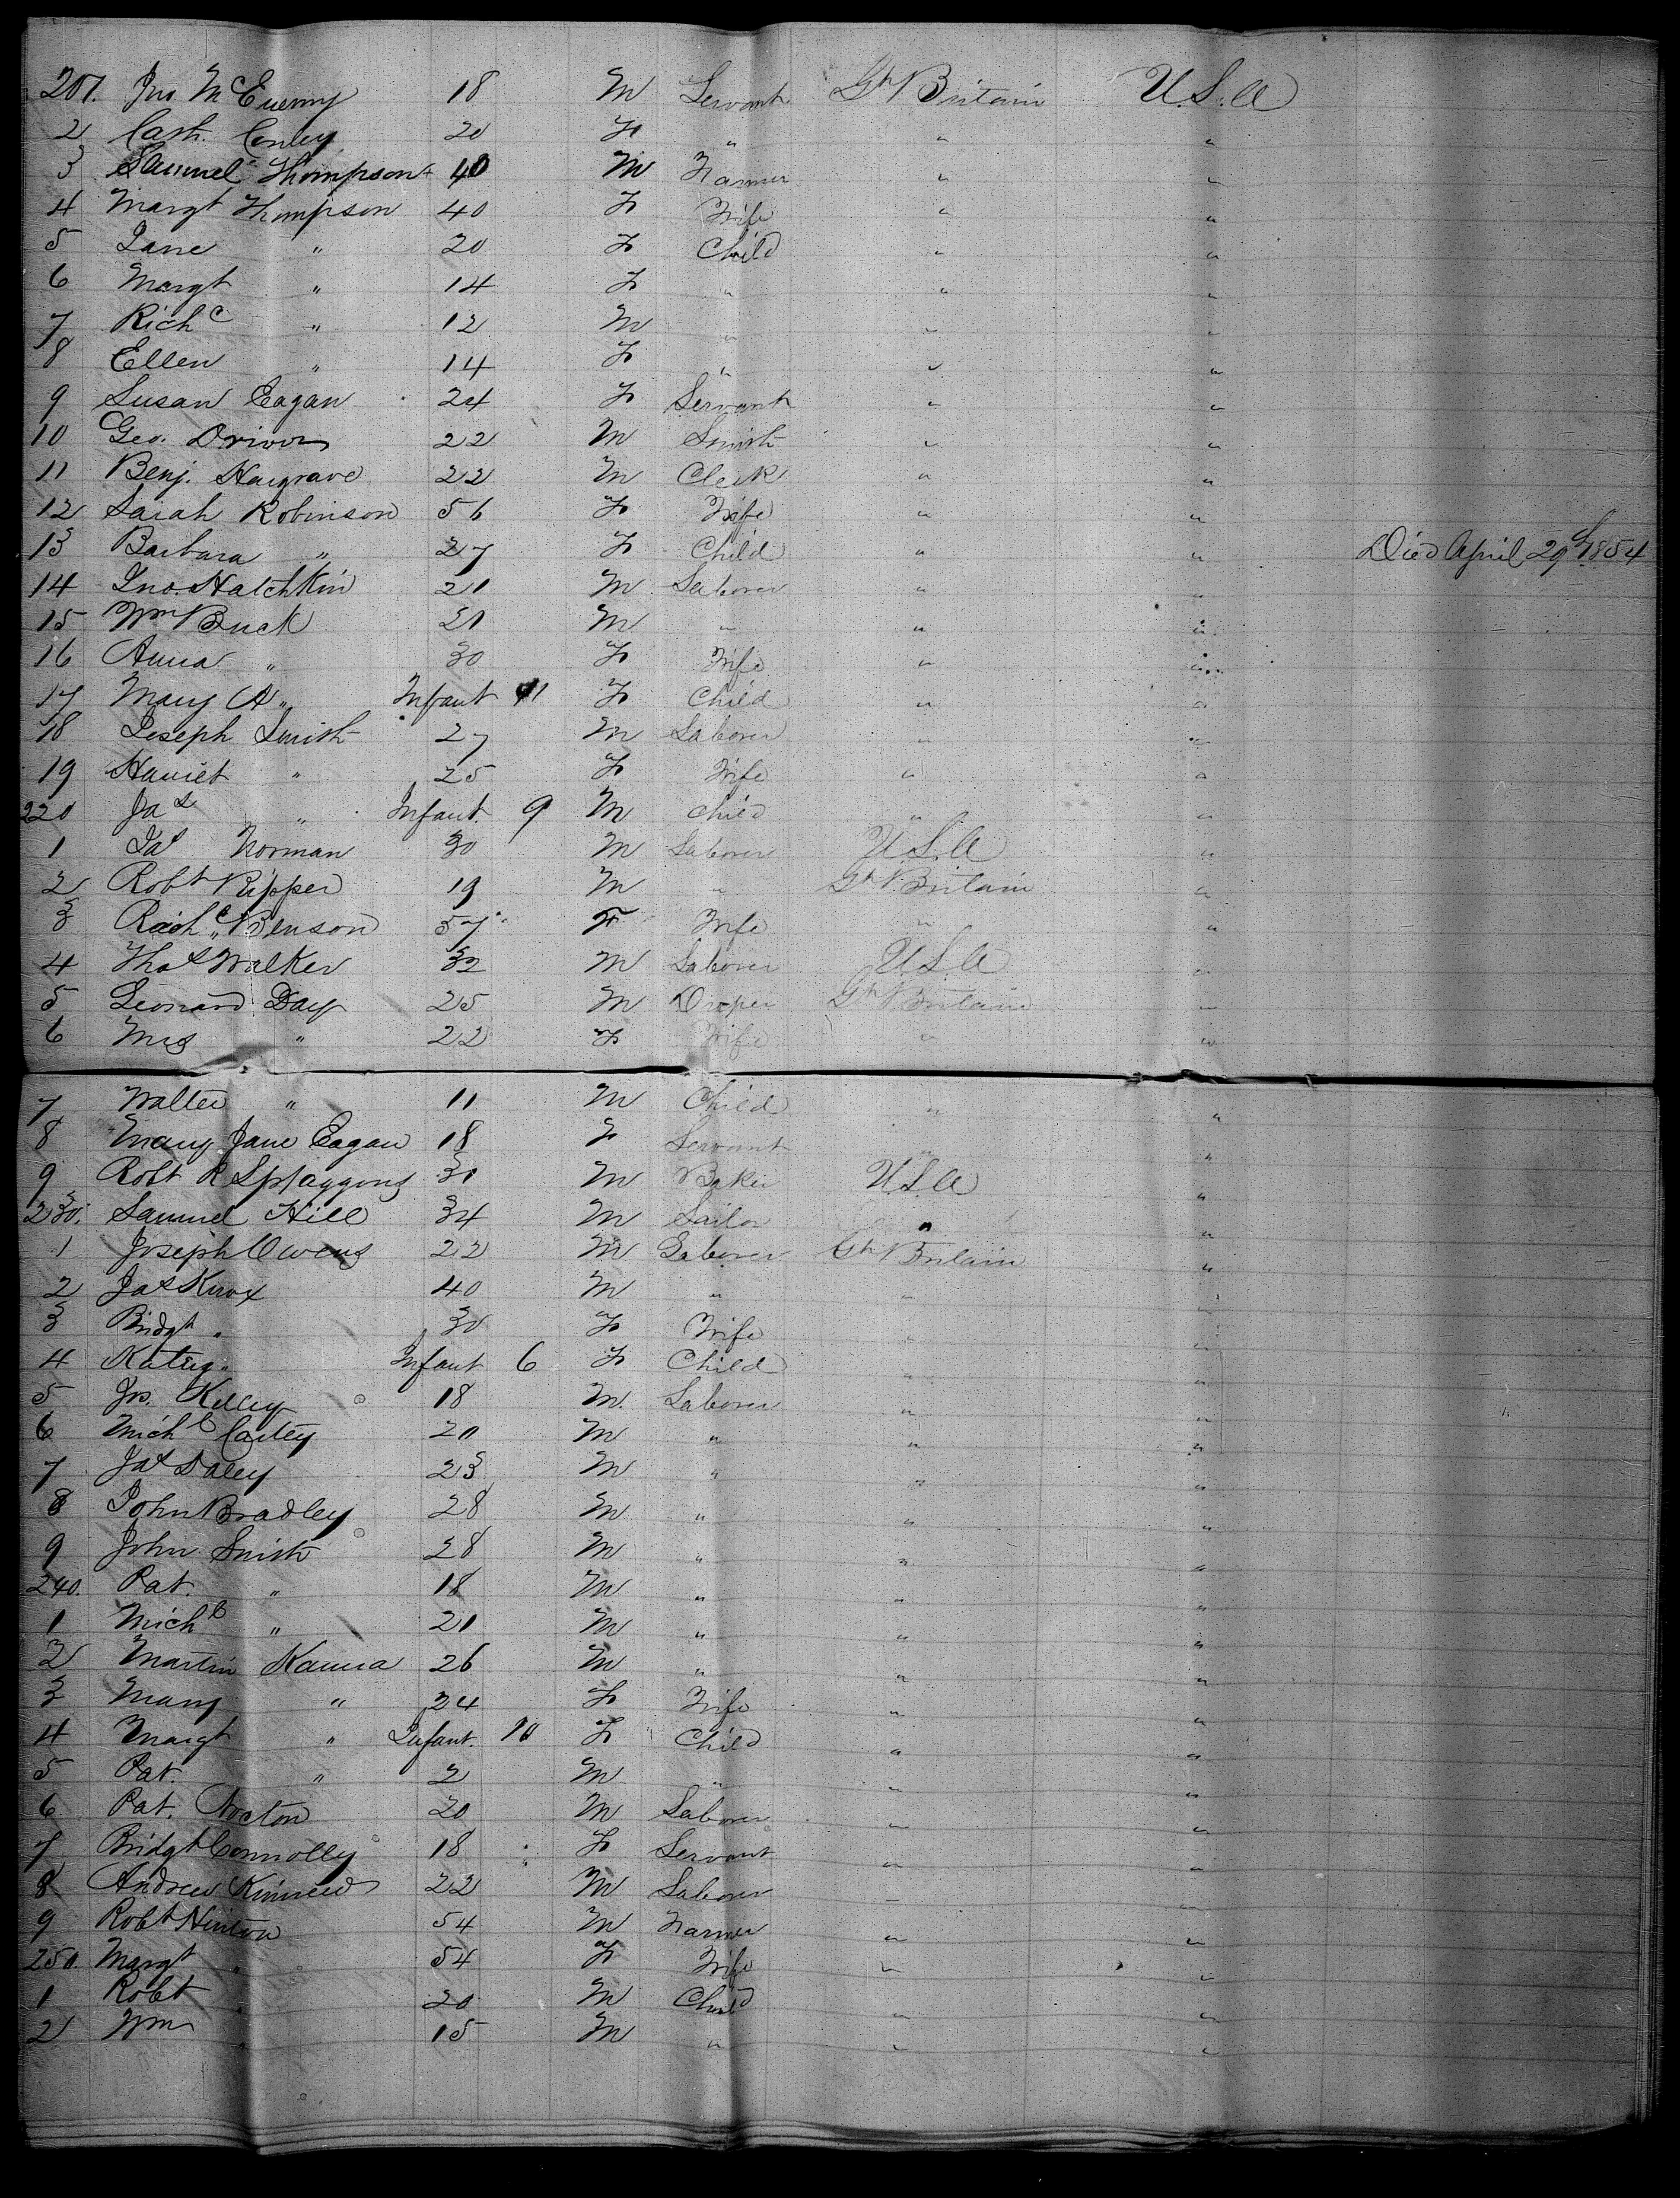 201. Jno. McEnerny 18 M Servant Gt Britain U.S.A
2 Cath. Conley 20 F " " "
3 Samuel Thompson 40 M Farmer " "
4 Margt Thompson 40 F Wife " "
5 Jane " 20 F Child " "
6 Margt " 14 F " " "
7 Richd " 12 M " " "
8 Ellen " 14 F " " "
9 Susan Eagan 24 F Servant " "
10 Geo. Driver 22 M Smith " "
11 Benj. Hargrave 22 M Clerk " "
12 Sarah Robinson 56 F Wife " "
13 Barbara " 27 F Child " " Died April 29th 1854
14 Jno. Hatchkin 21 M Laborer " "
15 Wm Buck 21 M " " "
16 Anna " 30 F Wife " "
17 Mary A " Infant 11 F Child " "
18 Joseph Smith 27 M Laborer " "
19 Harriet " 25 F Wife " "
220 Jas " Infant. 9 M Child " "
1 Jas Norman 30 M Laborer U.S.A "
2 Robt Ripper 19 M " Gt Britain "
3 Richd Benson 57 F Wife " "
4 Thos Walker 32 M Laborer U.S.A "
5 Leonard Day 25 M Draper Gt Britain "
6 Mrs " 22 F Wife " "
7 Walter " 11 M Child " "
8 Mary Jane Eagan 18 F Servant " "
9 Robt R Splaggons 30 M Baker U.S.A "
230. Samuel Hill 34 M Sailor " "
1 Joseph Owens 22 M Laborer Gt Britain "
2 Jas Knox 40 M " " "
3 Bridgt " 30 F Wife " "
4 Katey " Infant 6 F Child " "
5 Js. Kelley 18 M. Laborer " "
6 Michl Carley 20 M " " "
7 Jas Daley 23 M " " "
8 John Bradley 28 M " " "
9 John Smith 28 M " " "
240. Pat. " 18 M " " "
1 Michl " 21 M " " "
2 Martin Kanna 26 M " " "
3 Mary " 24 F Wife " "
4 Margt " Infant. 10 F Child " "
5 Pat. " 2 M " " "
6 Pat. Norton 20 M Laborer " "
7 Bridgt Connolly 18 F Servant " "
8 Andrew 22 M Laborer " "
9 Robt Hinton 54 M Farmer " "
250. Margt " 54 F Wife " "
1 Robt " 20 M Child " "
2 Wm " 15 M " " "